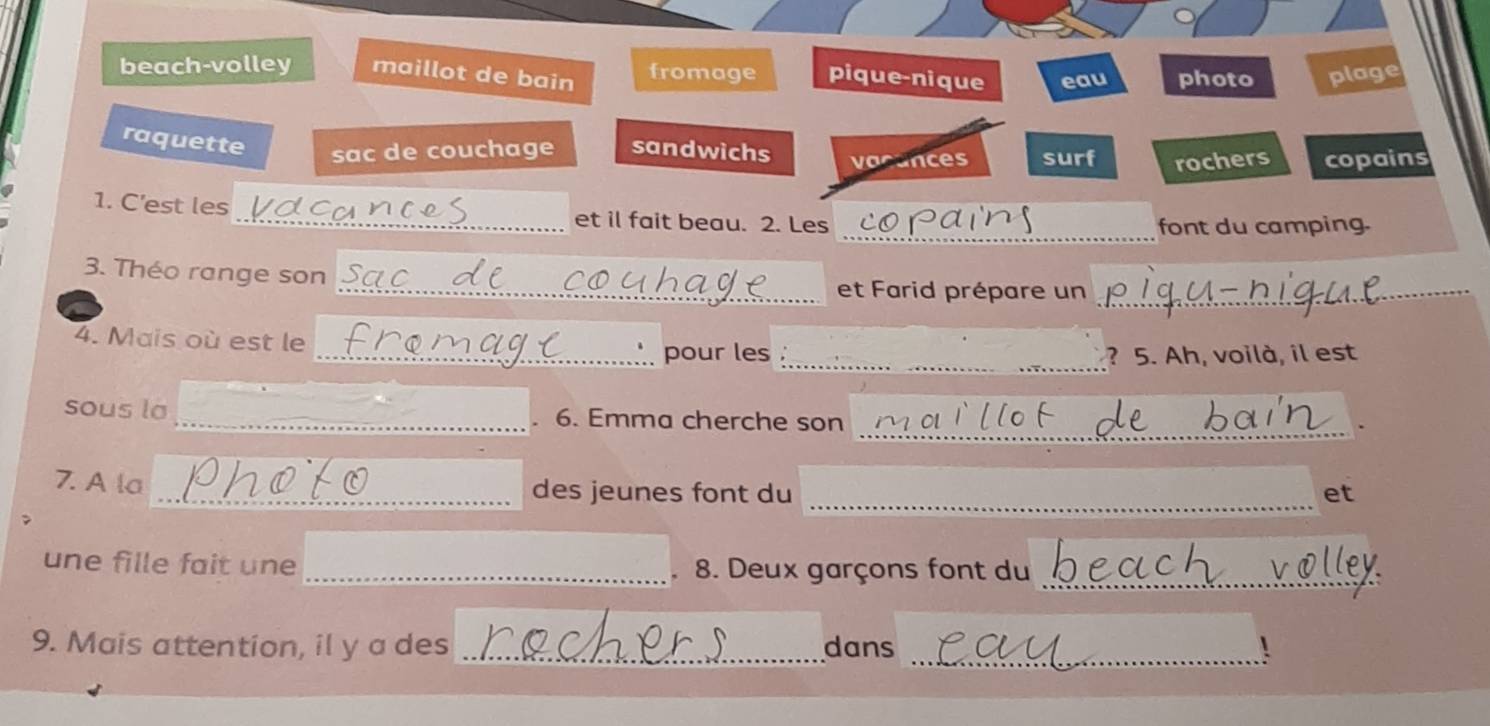 beach-volley maillot de bain fromage pique-nique eau photo plage
raquette sac de couchage sandwichs vacances surf rochers copains
1. C'est les vacances et il fait beau. 2. Les copains font du camping.
3. Théo range son sac de couhage et Farid prépare un piqu-nique
4. Mais où est le fromage pour les ? 5. Ah, voilà, il est
sous la . 6. Emma cherche son maillot de bain .
7. A la photo des jeunes font du et
une fille fait une . 8. Deux garçons font du beach volley.
9. Mais attention, il y a des rochers dans eau !